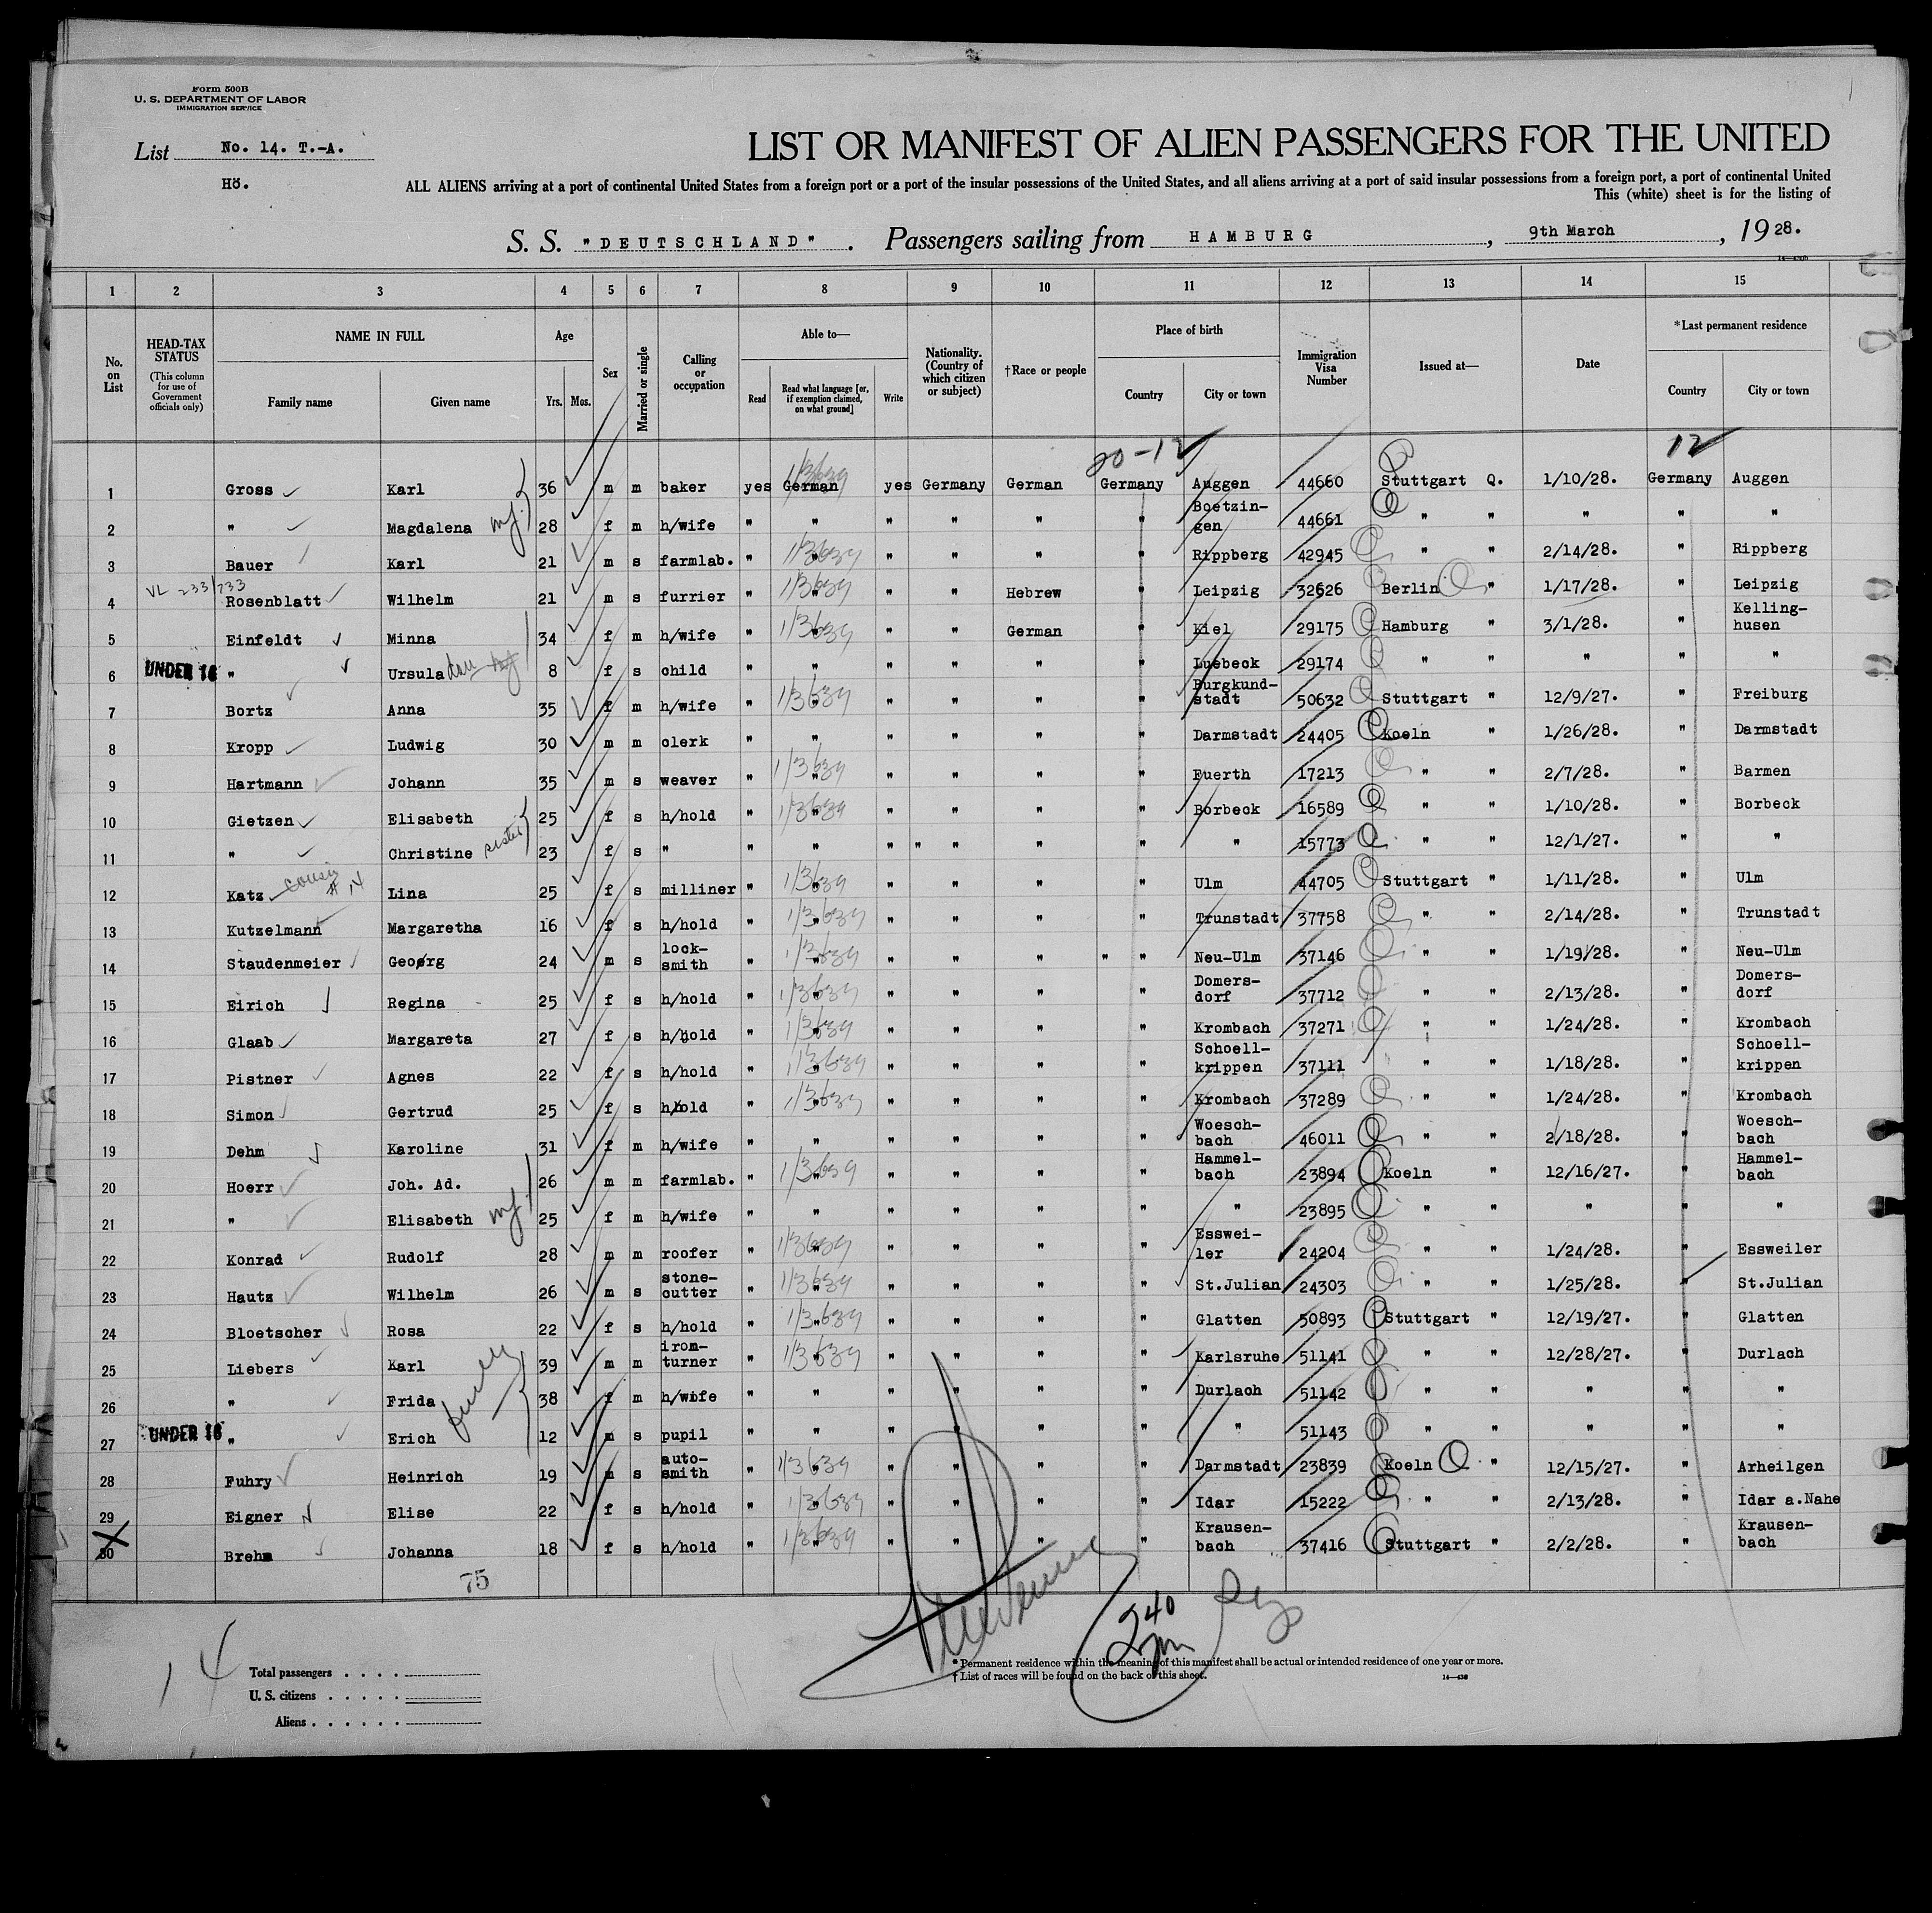 Form 500B
U. S. DEPARTMENT OF LABOR
IMMIGRATION SERVICE
List No. 14. T.-A.
Hö.
LIST OR MANIFEST OF ALIEN PASSENGERS FOR THE UNITED
ALL ALIENS arriving at a port of continental United States from a foreign port or a port of the insular possessions of the United States, and all aliens arriving at a port of said insular possessions from a foreign port, a port of continental United
This (white) sheet is for the listing of
S. S. "DEUTSCHLAND" . Passengers sailing from HAMBURG, 9th March, 1928.
1 2 3 4 5 6 7 8 9 10 11 12 13 14 15
No. on List
HEAD-TAX STATUS (This column for use of Government officials only)
NAME IN FULL Family name Given name
Age Yrs. Mos.
Sex
Married or single
Calling or occupation
Able to— Read Read what language [or, if exemption claimed, on what ground] Write
Nationality. (Country of which citizen or subject)
†Race or people
Place of birth Country City or town
Immigration Visa Number
Issued at—
Date
*Last permanent residence Country City or town
20-12 12
1 Gross Karl 36 m m baker yes German yes Germany German Germany Auggen 44660 Stuttgart Q. 1/10/28. Germany Auggen
2 " Magdalena 28 f m h/wife " " " " " " Boetzin-gen 44661 " " " " "
3 Bauer Karl 21 m s farmlab. " " " " " " Rippberg 42945 " " 2/14/28. " Rippberg
4 VL 233/733 Rosenblatt Wilhelm 21 m s furrier " " " " Hebrew " Leipzig 32626 Berlin " 1/17/28. " Leipzig
5 Einfeldt Minna 34 f m h/wife " " " " German " Kiel 29175 Hamburg " 3/1/28. " Kelling-husen
6 UNDER 16 " Ursula dau 8 f s child " " " " " " Luebeck 29174 " " " " "
7 Bortz Anna 35 f m h/wife " " " " " " Burgkund-stadt 50632 Stuttgart " 12/9/27. " Freiburg
8 Kropp Ludwig 30 m m clerk " " " " " " Darmstadt 24405 Koeln " 1/26/28. " Darmstadt
9 Hartmann Johann 35 m s weaver " " " " " " Fuerth 17213 " " 2/7/28. " Barmen
10 Gietzen Elisabeth 25 f s h/hold " " " " " " Borbeck 16589 " " 1/10/28. " Borbeck
11 " Christine sister 23 f s " " " " " " " " " 15773 " " 12/1/27. " "
12 Katz cousin # 14 Lina 25 f s milliner " " " " " " Ulm 44705 Stuttgart " 1/11/28. " Ulm
13 Kutzelmann Margaretha 16 f s h/hold " " " " " " Trunstadt 37758 " " 2/14/28. " Trunstadt
14 Staudenmeier Georg 24 m s lock-smith " " " " " " " Neu-Ulm 37146 " " 1/19/28. " Neu-Ulm
15 Eirich Regina 25 f s h/hold " " " " " " Domers-dorf 37712 " " 2/13/28. " Domers-dorf
16 Glaab Margareta 27 f s h/hold " " " " " " Krombach 37271 " " 1/24/28. " Krombach
17 Pistner Agnes 22 f s h/hold " " " " " " Schoell-krippen 37111 " " 1/18/28. " Schoell-krippen
18 Simon Gertrud 25 f s h/hold " " " " " " Krombach 37289 " " 1/24/28. " Krombach
19 Dehm Karoline 31 f m h/wife " " " " " " Woesch-bach 46011 " " 2/18/28. " Woesch-bach
20 Hoerr Joh. Ad. 26 m m farmlab. " " " " " " Hammel-bach 23894 Koeln " 12/16/27. " Hammel-bach
21 " Elisabeth 25 f m h/wife " " " " " " " 23895 " " " " "
22 Konrad Rudolf 28 m m roofer " " " " " " Esswei-ler 24204 " " 1/24/28. " Essweiler
23 Hautz Wilhelm 26 m s stone-cutter " " " " " " St.Julian 24303 " " 1/25/28. " St.Julian
24 Bloetscher Rosa 22 f s h/hold " " " " " " Glatten 50893 Stuttgart " 12/19/27. " Glatten
25 Liebers Karl 39 m m iron-turner " " " " " " Karlsruhe 51141 " " 12/28/27. " Durlach
26 " Frida 38 f m h/wife " " " " " " Durlach 51142 " " " " "
27 UNDER 16 " Erich 12 m s pupil " " " " " " " 51143 " " " " "
28 Fuhry Heinrich 19 m s auto-smith " " " " " " Darmstadt 23839 Koeln " 12/15/27. " Arheilgen
29 Eigner Elise 22 f s h/hold " " " " " " Idar 15222 " " 2/13/28. " Idar a.Nahe
30 Brehm Johanna 18 f s h/hold " " " " " " Krausen-bach 37416 Stuttgart " 2/2/28. " Krausen-bach
75
240 pm
14
Total passengers . . . .
U. S. citizens . . . . .
Aliens . . . . . .
* Permanent residence within the meaning of this manifest shall be actual or intended residence of one year or more.
† List of races will be found on the back of this sheet.